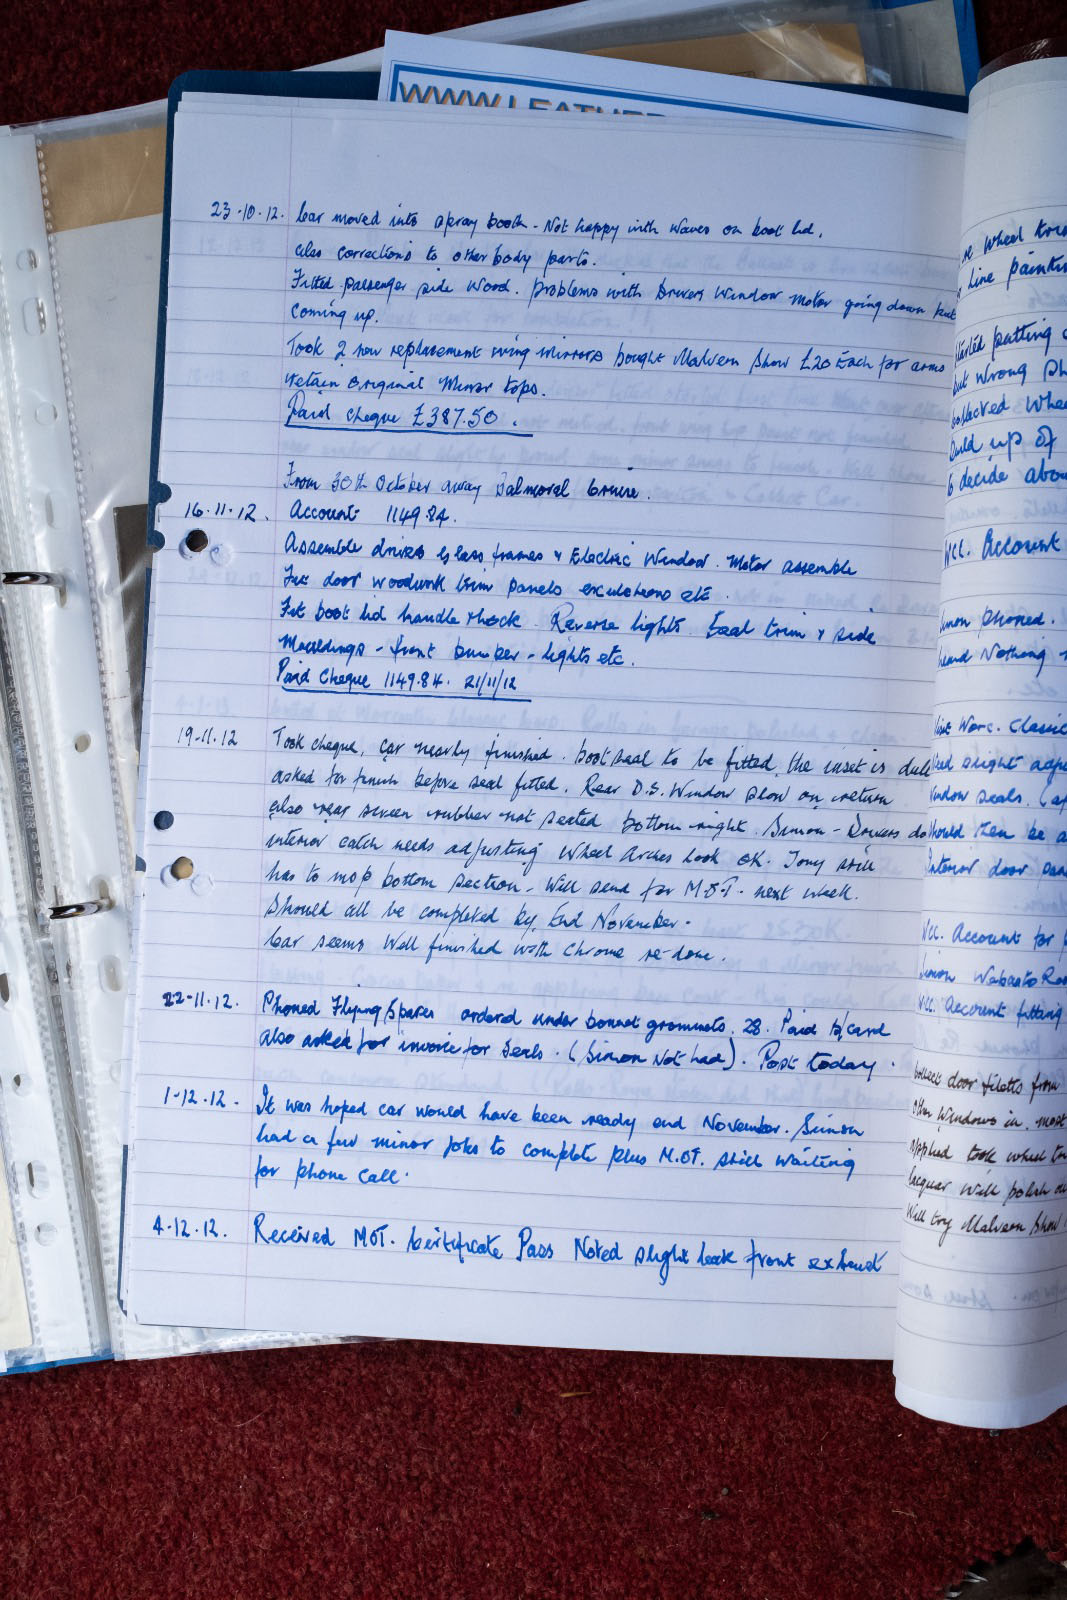 WWW.LEATHER
23-10-12. Car moved into spray booth - Not happy with waves on boot lid,
also corrections to other body parts.
Fitted passenger side wood. Problems with Drivers Window motor going down but
coming up.
Took 2 new replacement wing mirrors bought Malvern Show £20 Each for arms
retain original Mirror tops.
Paid cheque £387.50.
From 30th October away Balmoral Cruise.
16.11.12. Account 1149.84.
Assemble drivers glass frames & Electric Window. Motor assemble
Fit door woodwork trim panels etc.
Fit boot lid handle & lock. Reverse lights. Seal trim & side
Mouldings - front bumper - lights etc.
Paid Cheque 1149.84. 21/11/12
19-11.12 Took cheque, car nearly finished. boot seal to be fitted, the inset is dull
asked for finish before seal fitted. Rear D.S. Window slow on return
also rear screen rubber not seated bottom right. Simon - Drivers do
interior catch needs adjusting Wheel Arches look OK. Tony still
has to mop bottom section. Will send for M.O.T. next week.
Should all be completed by End November.
Car seems Well finished with Chrome re-done.
22-11.12. Phoned Flying Spares ordered under bonnet grommets. 28. Paid b/card
also asked for invoice for seals. (Simon Not had). Post today.
1-12.12. It was hoped car would have been ready end November. Simon
had a few minor jobs to complete plus M.OT. still waiting
for phone call.
4.12.12. Received MOT. Certificate Pass Noted slight leak front exhaust
wheel
line
started putting
but wrong
collected
build up of
to decide
Account
Simon phoned.
heard Nothing
Visit Worc. Classic
slight
window seals.
should then be
Interior door
Account for
Simon Webasto
Account fitting
collect door from
other windows in, most
applied took wheel
lacquer will polish
Will try Malvern Show